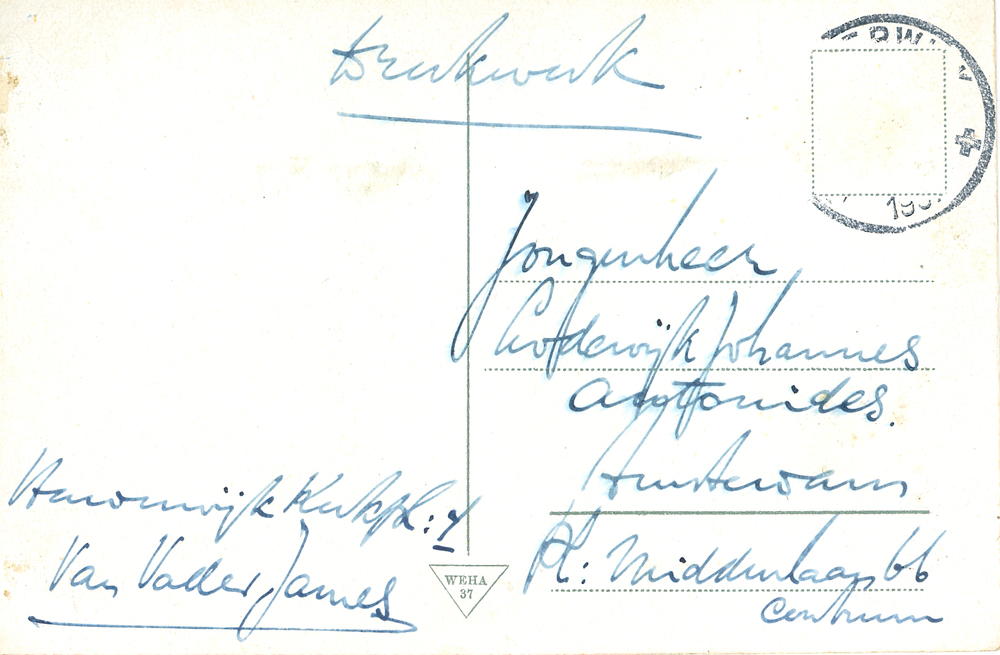 Drukwerk
Jongenheer
Lodewijk Johannes
Antonides.
Amsterdam
Pl: Middenlaan 66
Centrum
Kerkpl: 4
Van Vader James
WEHA
37